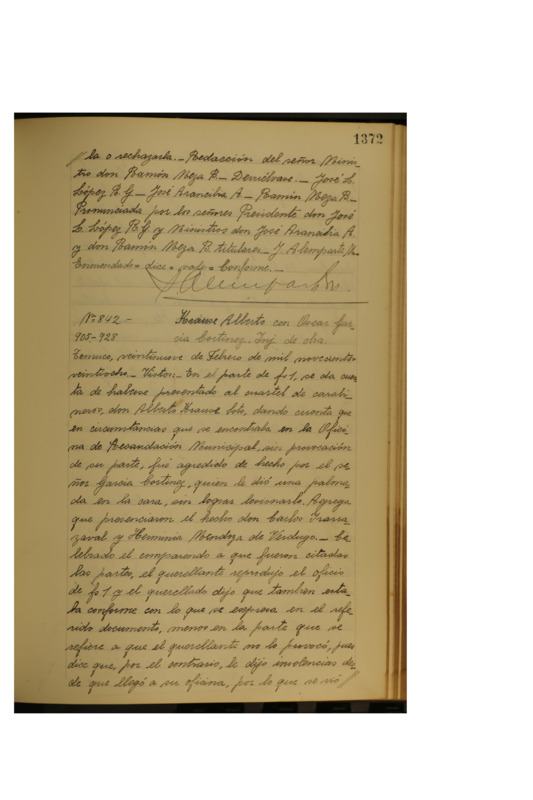 1372
la o rechazarla._ Redacción del señor Minis-
tro don Ramón Meza R._ Devuélvase._ José L.
López R. G._ José Arancibia A._ Ramón Meza R._
Pronunciada por los señores Presidente don José
L. López R. G. y Ministros don José Arancibia A.
y don Ramón Meza R. titulares._ J. Alemparte
Enmendado = dice = vale = Conforme._
Nº 842- Krause Alberto con Oscar Gar-
905-928 cia Cortinez. Inj. de obra.
Temuco, veintinueve de Febrero de mil novecientos
veintiocho._ Vistos:_ En el parte de fs 1, se da cuen
ta de haberse presentado al cuartel de carabi-
neros, don Alberto Krause Soto, dando cuenta que
en circunstancias que se encontraba en la Ofici
na de Recaudación Municipal, sin provocación
de su parte, fué agredido de hecho por el se
ñor Garcia Cortinez, quien le dió una palma
da en la cara, sin lograr lesionarlo. Agrega
que presenciaron el hecho don Carlos Irarra
zaval y Herminia Mendoza de Verdugo._ Ce
lebrado el comparendo a que fueron citadas
las partes, el querellante reprodujo el oficio
de fs 1 y el querellado dijo que tambien esta-
ba conforme con lo que se expresa en el refe
rido documento, menos en la parte que se
refiere a que el querellante no lo provocó, pues
dice que, por el contrario, le dijo insolencias des
de que llegó a su oficina, por lo que se vió